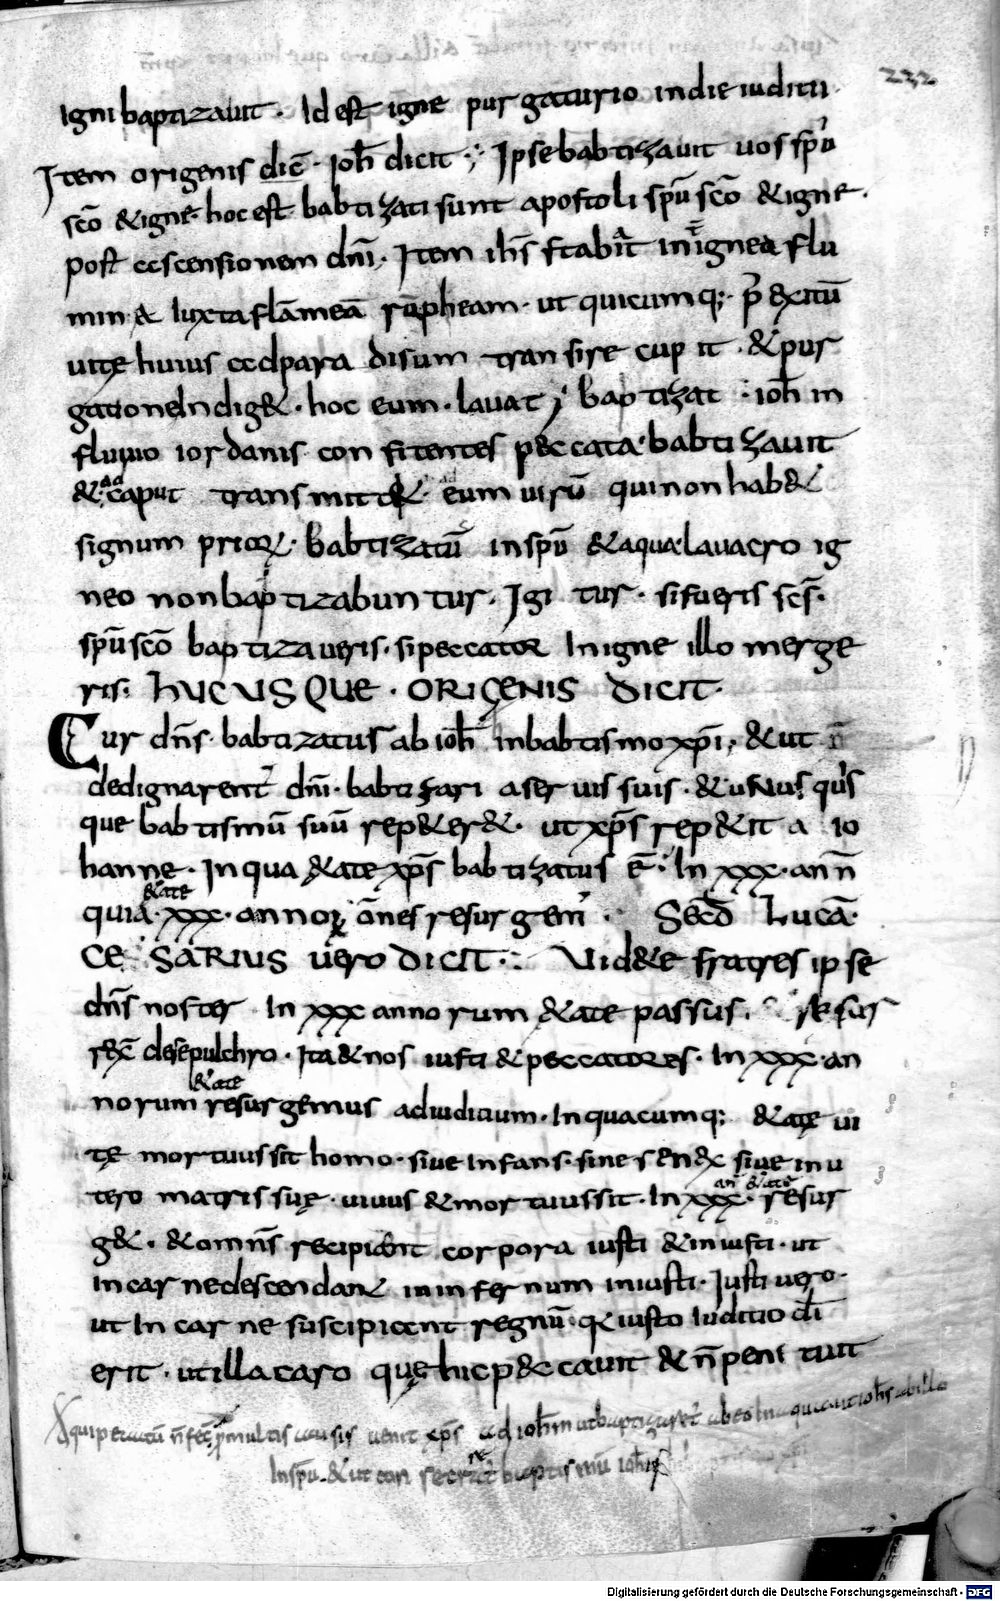 232
igni baptizauit · Id est igne purgaturio in die iuditii ·
Item origenis dic̄ · ioh̄ dicit · Ipse babtizauit uos sp̄u
sc̄o & igne · hoc est babtizati sunt apostoli sp̄u sc̄o & igne ·
post ascensionem dn̄i · Item ih̄s stabit in igneo flu
min& iuxta flāmeā rōpheam · ut quicumq; p̄ exitū
uitę huius ad paradisum transire cupit · & pur
gatione indig& · hoc eum lauat baptizat · ioh̄ in
fluuio iordanis confitentes peccata babtizauit
& ad caput transmitt& eum uirū qui non hab&
signum prioꝝ · babtizatū in sp̄u & aqua lauacro ig
neo non baptizabuntur · Igitur · si fueris sc̄s ·
sp̄u sc̄o baptizaueris · si peccator in igne illo merge
ris · HUCUSQUE · ORIGENIS DICIT ·
Cur dn̄s · babtizatus ab ioh̄ in babtismo xp̄i · & ut n̄
dedignarent̄ dn̄i · babtizari a seruis suis · & unus quis
que babtismū suū rep&er& · ut xp̄s rep&it a io
hanne · In qua &ate xp̄s babtizatus ē · In xxx · ann̄
&ate
quia · xxx · annoꝝ ōnes resurgem̄ · Sec̄d Lucā ·
CESARIUS uero DICIT · Uid&e fratres ipse
dn̄s noster In xxx annorum &ate passus · resur
rex̄ de sepulchro · Ita & nos iusti & peccatores · In xxx · an
&ate
norum resurgemus ad iuditium · In quacumq; &ate ui
tę mortuus sit homo · siue infans · siue senex siue in u
an̄ &atē
tero matris suę · uiuus & mortuus sit · In xxx · resur
g& · & omn̄s recipient corpora iusti & iniusti · ut
in carne descendant in infernum iniusti · Iusti uero ·
ut in carne suscipient regnū · q iusto iuditio dī
erit · ut illa caro que hic peccauit & n̄ penituit
qui peccatū n̄ fec̄ multis causis uenit xp̄s ad ioh̄m ut baptizaret̄ ab eo in aqua ut ioh̄s ab illo
In sp̄u · & ut con secraret baptismū ioh̄is
Digitalisierung gefördert durch die Deutsche Forschungsgemeinschaft · DFG